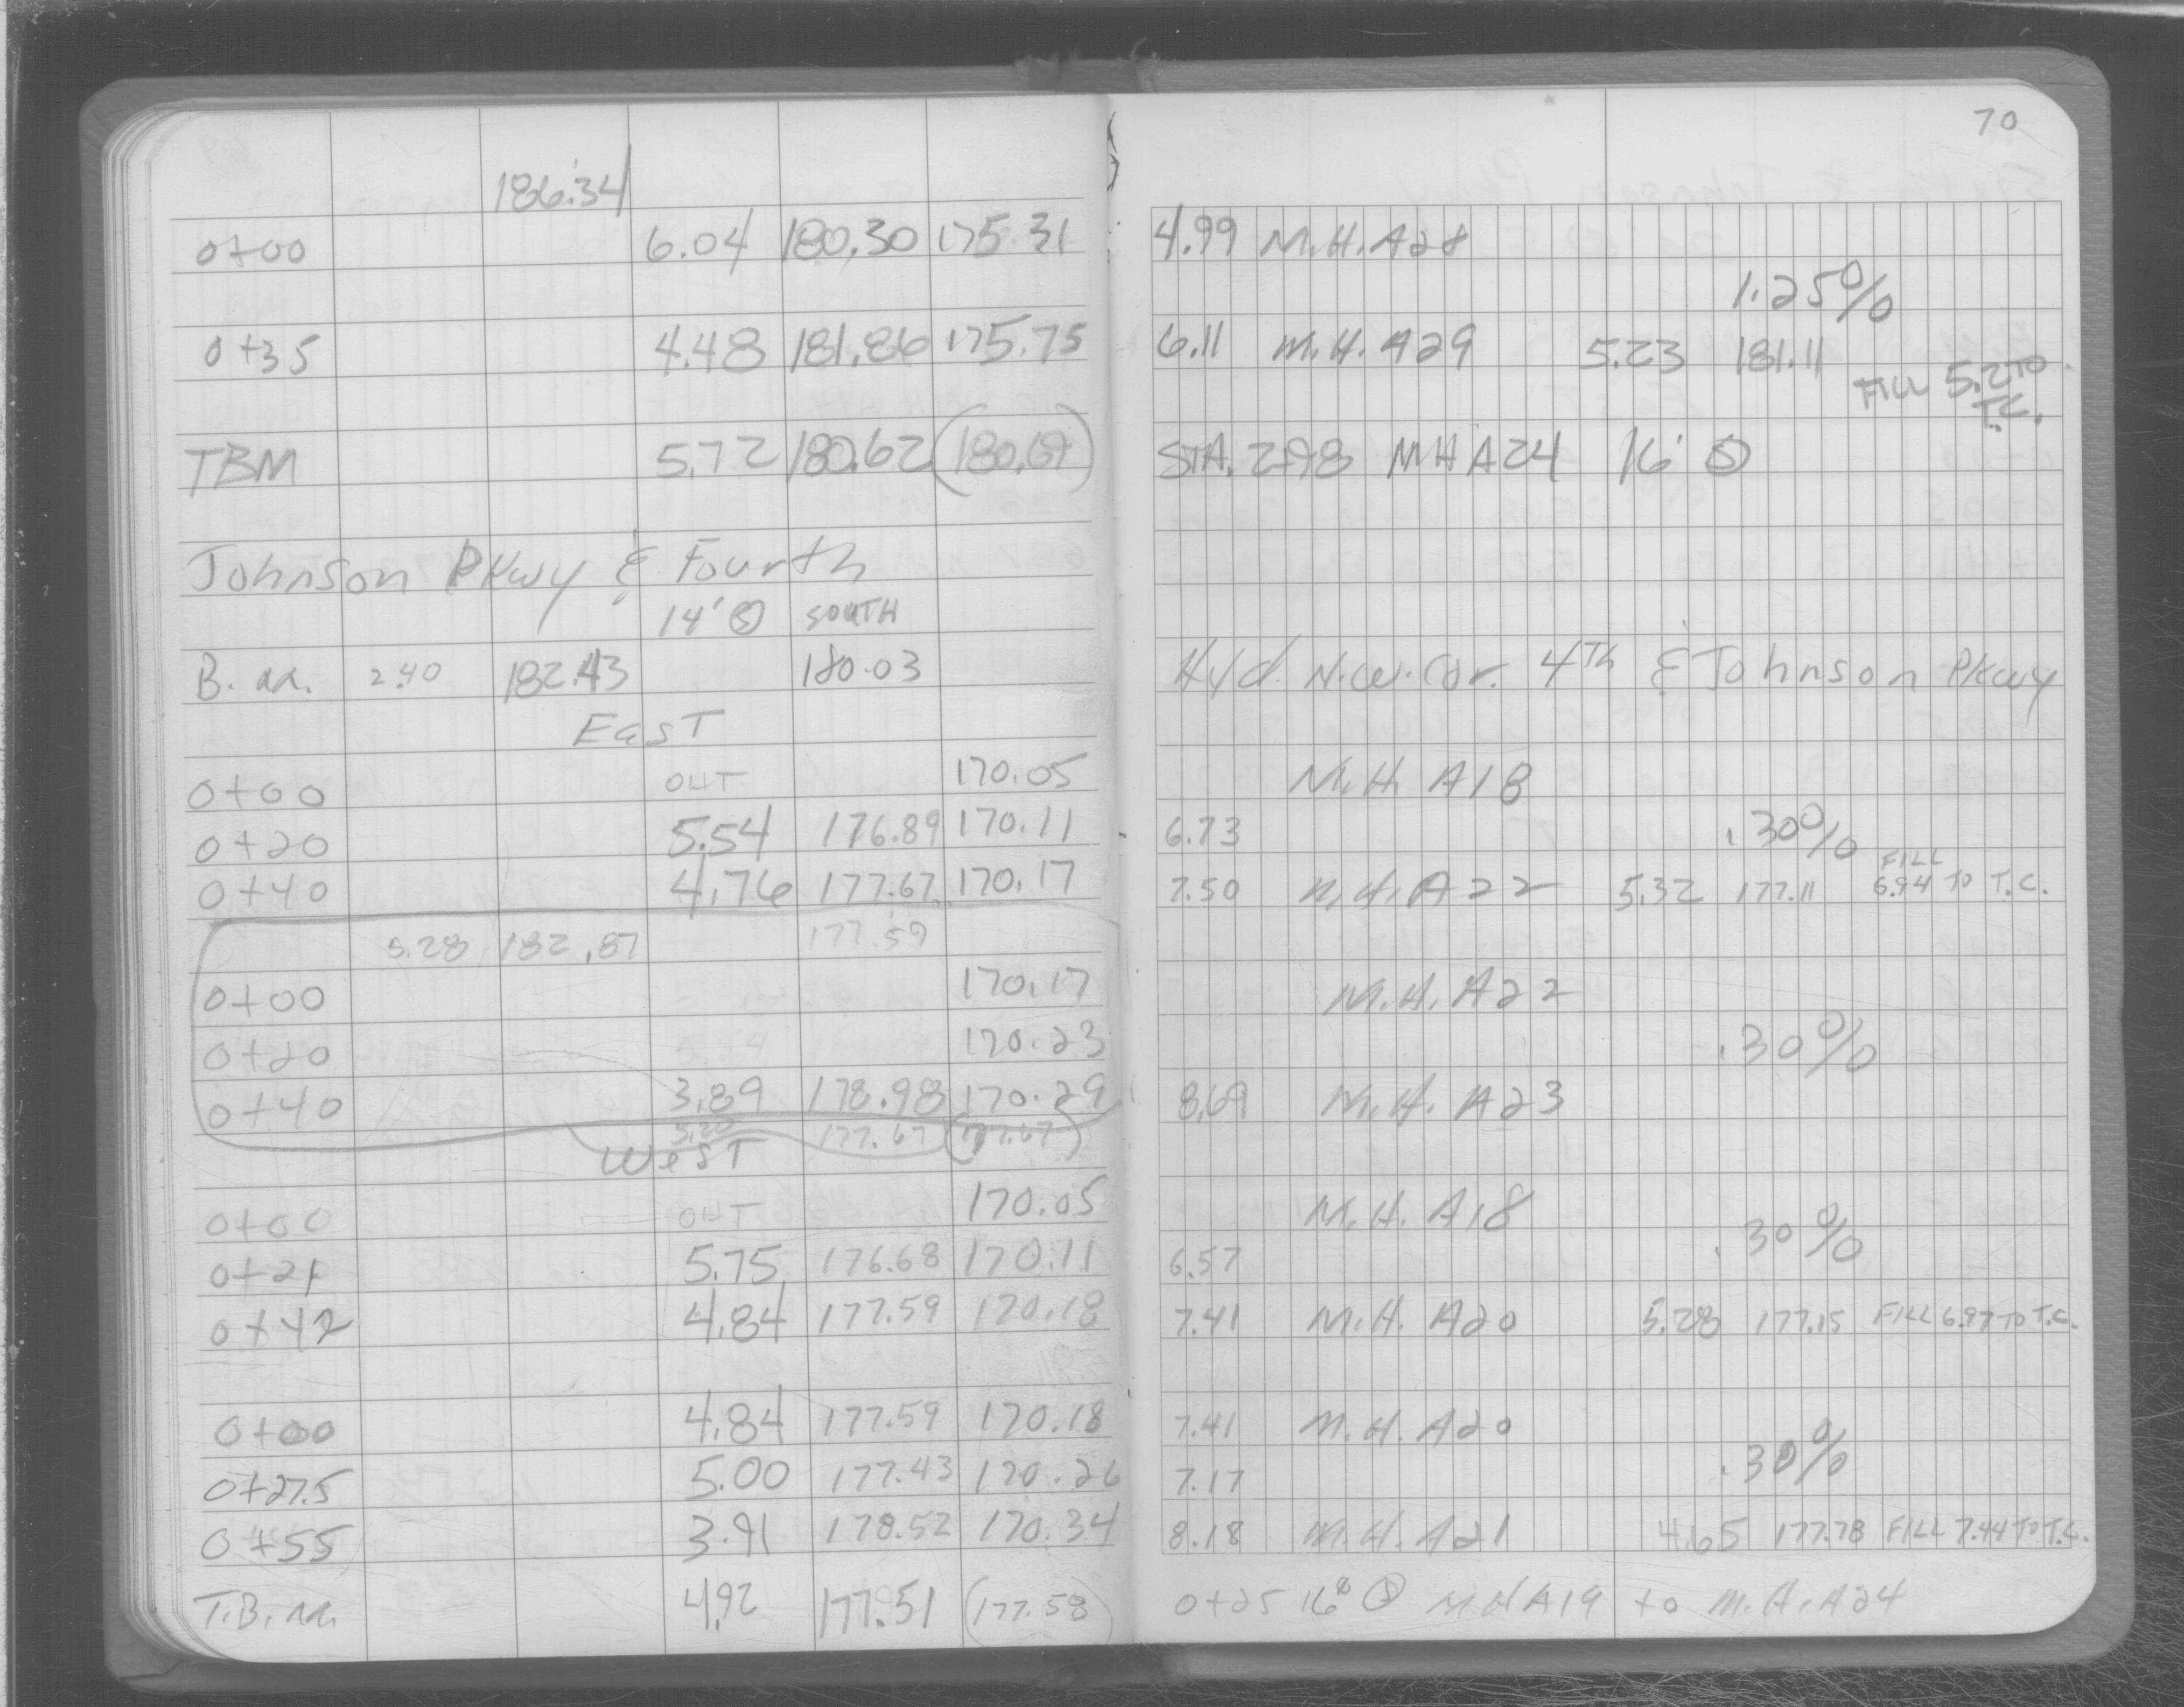 70
186.34
0+00 6.04 180.30 175.31 4.99 M.H. A28
1.25%
0+35 4.48 181.86 175.75 6.11 M.H. A29 5.23 181.11
FILL 5.2 TO T.C.
TBM 5.72 180.62 (180.67) STA. 2+98 MH A24 16' Ⓢ
Johnson Pkwy & Fourth
14' Ⓢ SOUTH
B.M. 2.40 182.43 180.03 Hyd. N.W. Cor. 4TH & Johnson Pkwy
EAST
0+00 OUT 170.05 M.H. A18
0+20 5.54 176.89 170.11 6.73 .30%
0+40 4.76 177.67 170.17 7.50 M.H. A22 5.32 177.11 FILL 6.94 TO T.C.
5.28 182.87 177.59
0+00 170.17 M.H. A22
0+20 170.23 .30%
0+40 3.89 178.98 170.29 8.69 M.H. A23
5.20 177.67 (177.67)
WEST
0+00 OUT 170.05 M.H. A18
0+21 5.75 176.68 170.11 6.57 .30%
0+42 4.84 177.59 170.18 7.41 M.H. A20 5.28 177.15 FILL 6.97 TO T.C.
0+00 4.84 177.59 170.18 7.41 M.H. A20
0+27.5 5.00 177.43 170.26 7.17 .30%
0+55 3.91 178.52 170.34 8.18 M.H. A21 4.65 177.78 FILL 7.44 TO T.C.
T.B.M. 4.92 177.51 (177.58) 0+25 16' Ⓢ MH A19 to M.H. A24